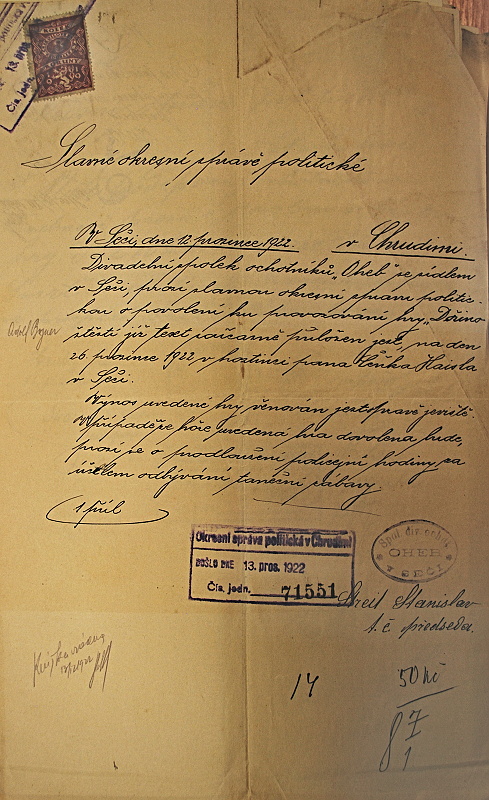 13. PROS
Čís. jedn.
KOLEK
Slavné okresní správě politické
V Seči, dne 12 prosince 1922. v Chrudimi.
Divadelní spolek ochotníků „Oheb" se sídlem
v Seči, prosí slavnou okresní správu politic-
kou o povolení ku provozování hry „
štěstí již text současně přiložen jest, na den
26 prosince 1922, v hostinci pana Haisla
v Seči.
Výnos uvedené hry věnován jest správě jeviště.
V případě, že hoře uvedená hra dovolena bude,
prosí se o prodloužení policejní hodiny, za
účelem odbývání taneční zábavy.
1 příl
Okresní správa politická v Chrudimi
DOŠLO DNE 13. pros. 1922
Čís. jedn. 71551
Spol. div. ochot.
OHEB
v SEČI
Streit Stanislav
t. č. předseda.
14
50 Kč
8 7
1